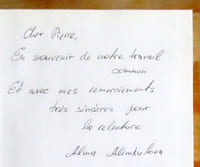 Cher Pierre,
En souvenir de notre travail
commun
Et avec mes remerciements
très sincères pour
la relecture
Alma